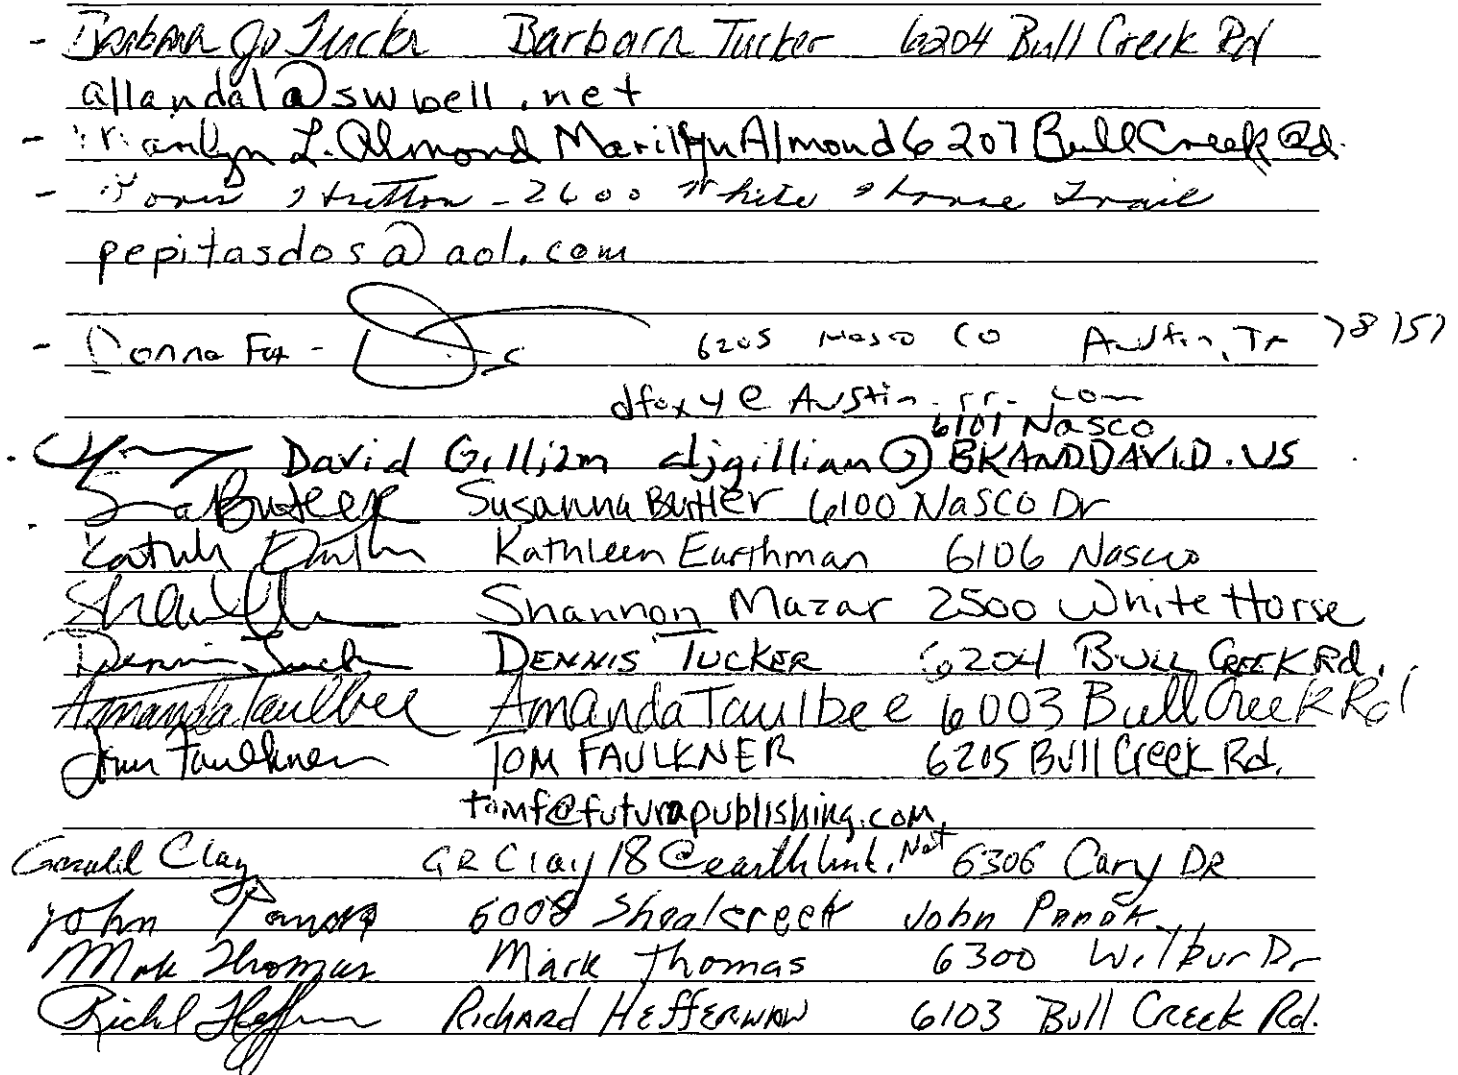 - Barbara Jo Tucker Barbara Tucker 6204 Bull Creek Rd
allandal@swbell.net
- Marilyn L. Almond Marilyn Almond 6207 Bull Creek Rd.
- Stratton - 2600 White Horse Trail
pepitasdos@aol.com
- Donna Fox - 6205 Nasco Co Austin, Tx 78757
dfoxy@Austin.rr.com
6101 Nasco
David Gilliam djgillian@BKANDDAVID.US
Susanna Butler 6100 Nasco Dr
Kathleen Earthman 6106 Nasco
Shannon Mazar 2500 White Horse
Dennis Tucker DENNIS TUCKER 6204 BULL CREEK Rd.
Amanda Taulbee Amanda Taulbee 6003 Bull Creek Rd
Tom Faulkner TOM FAULKNER 6205 Bull Creek Rd.
tomf@futurapublishing.com
Gerald Clay GRClay18@earthlink.Net 6306 Cary DR
John Panak 6008 Shoalcreek John Panak
Mark Thomas Mark Thomas 6300 Wilbur Dr
Richard HEFFERNAN 6103 Bull Creek Rd.